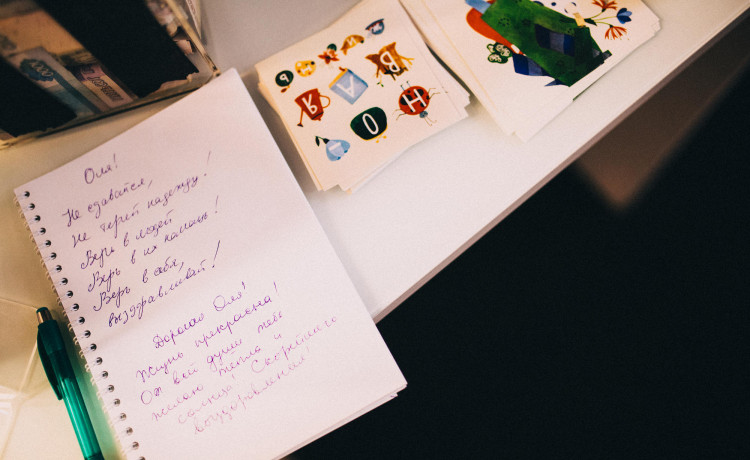 Оля!
Не сдавайся,
Не теряй надежду!
Верь в людей
Верь в их помощь!
Верь в себя,
выздоравливай!
Дорогая Оля!
Жизнь прекрасна!
От всей души тебе
желаю тепла и
солнца! Скорейшего
выздоровления!